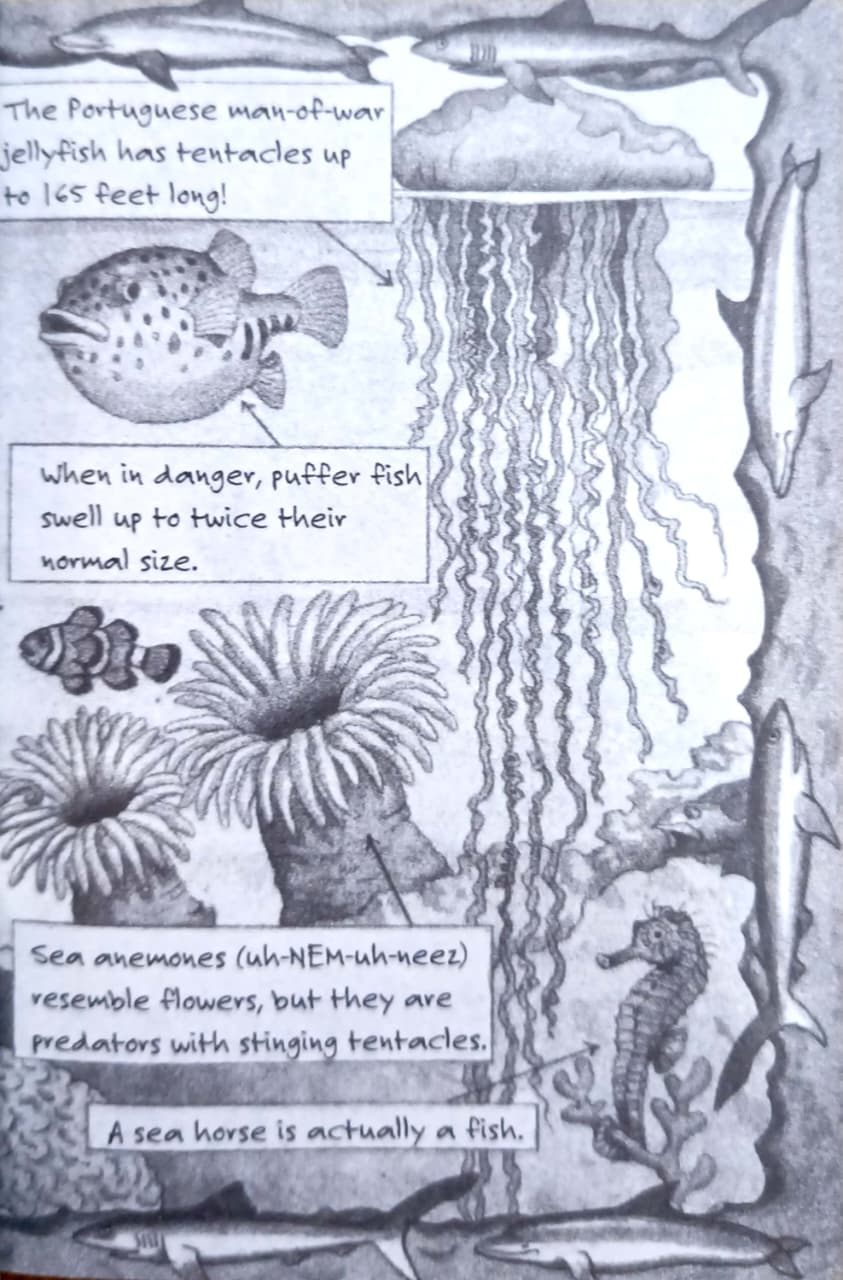 The Portuguese man-of-war
jellyfish has tentacles up
to 165 feet long!
When in danger, puffer fish
swell up to twice their
normal size.
Sea anemones (uh-NEM-uh-neez)
resemble flowers, but they are
predators with stinging tentacles.
A sea horse is actually a fish.